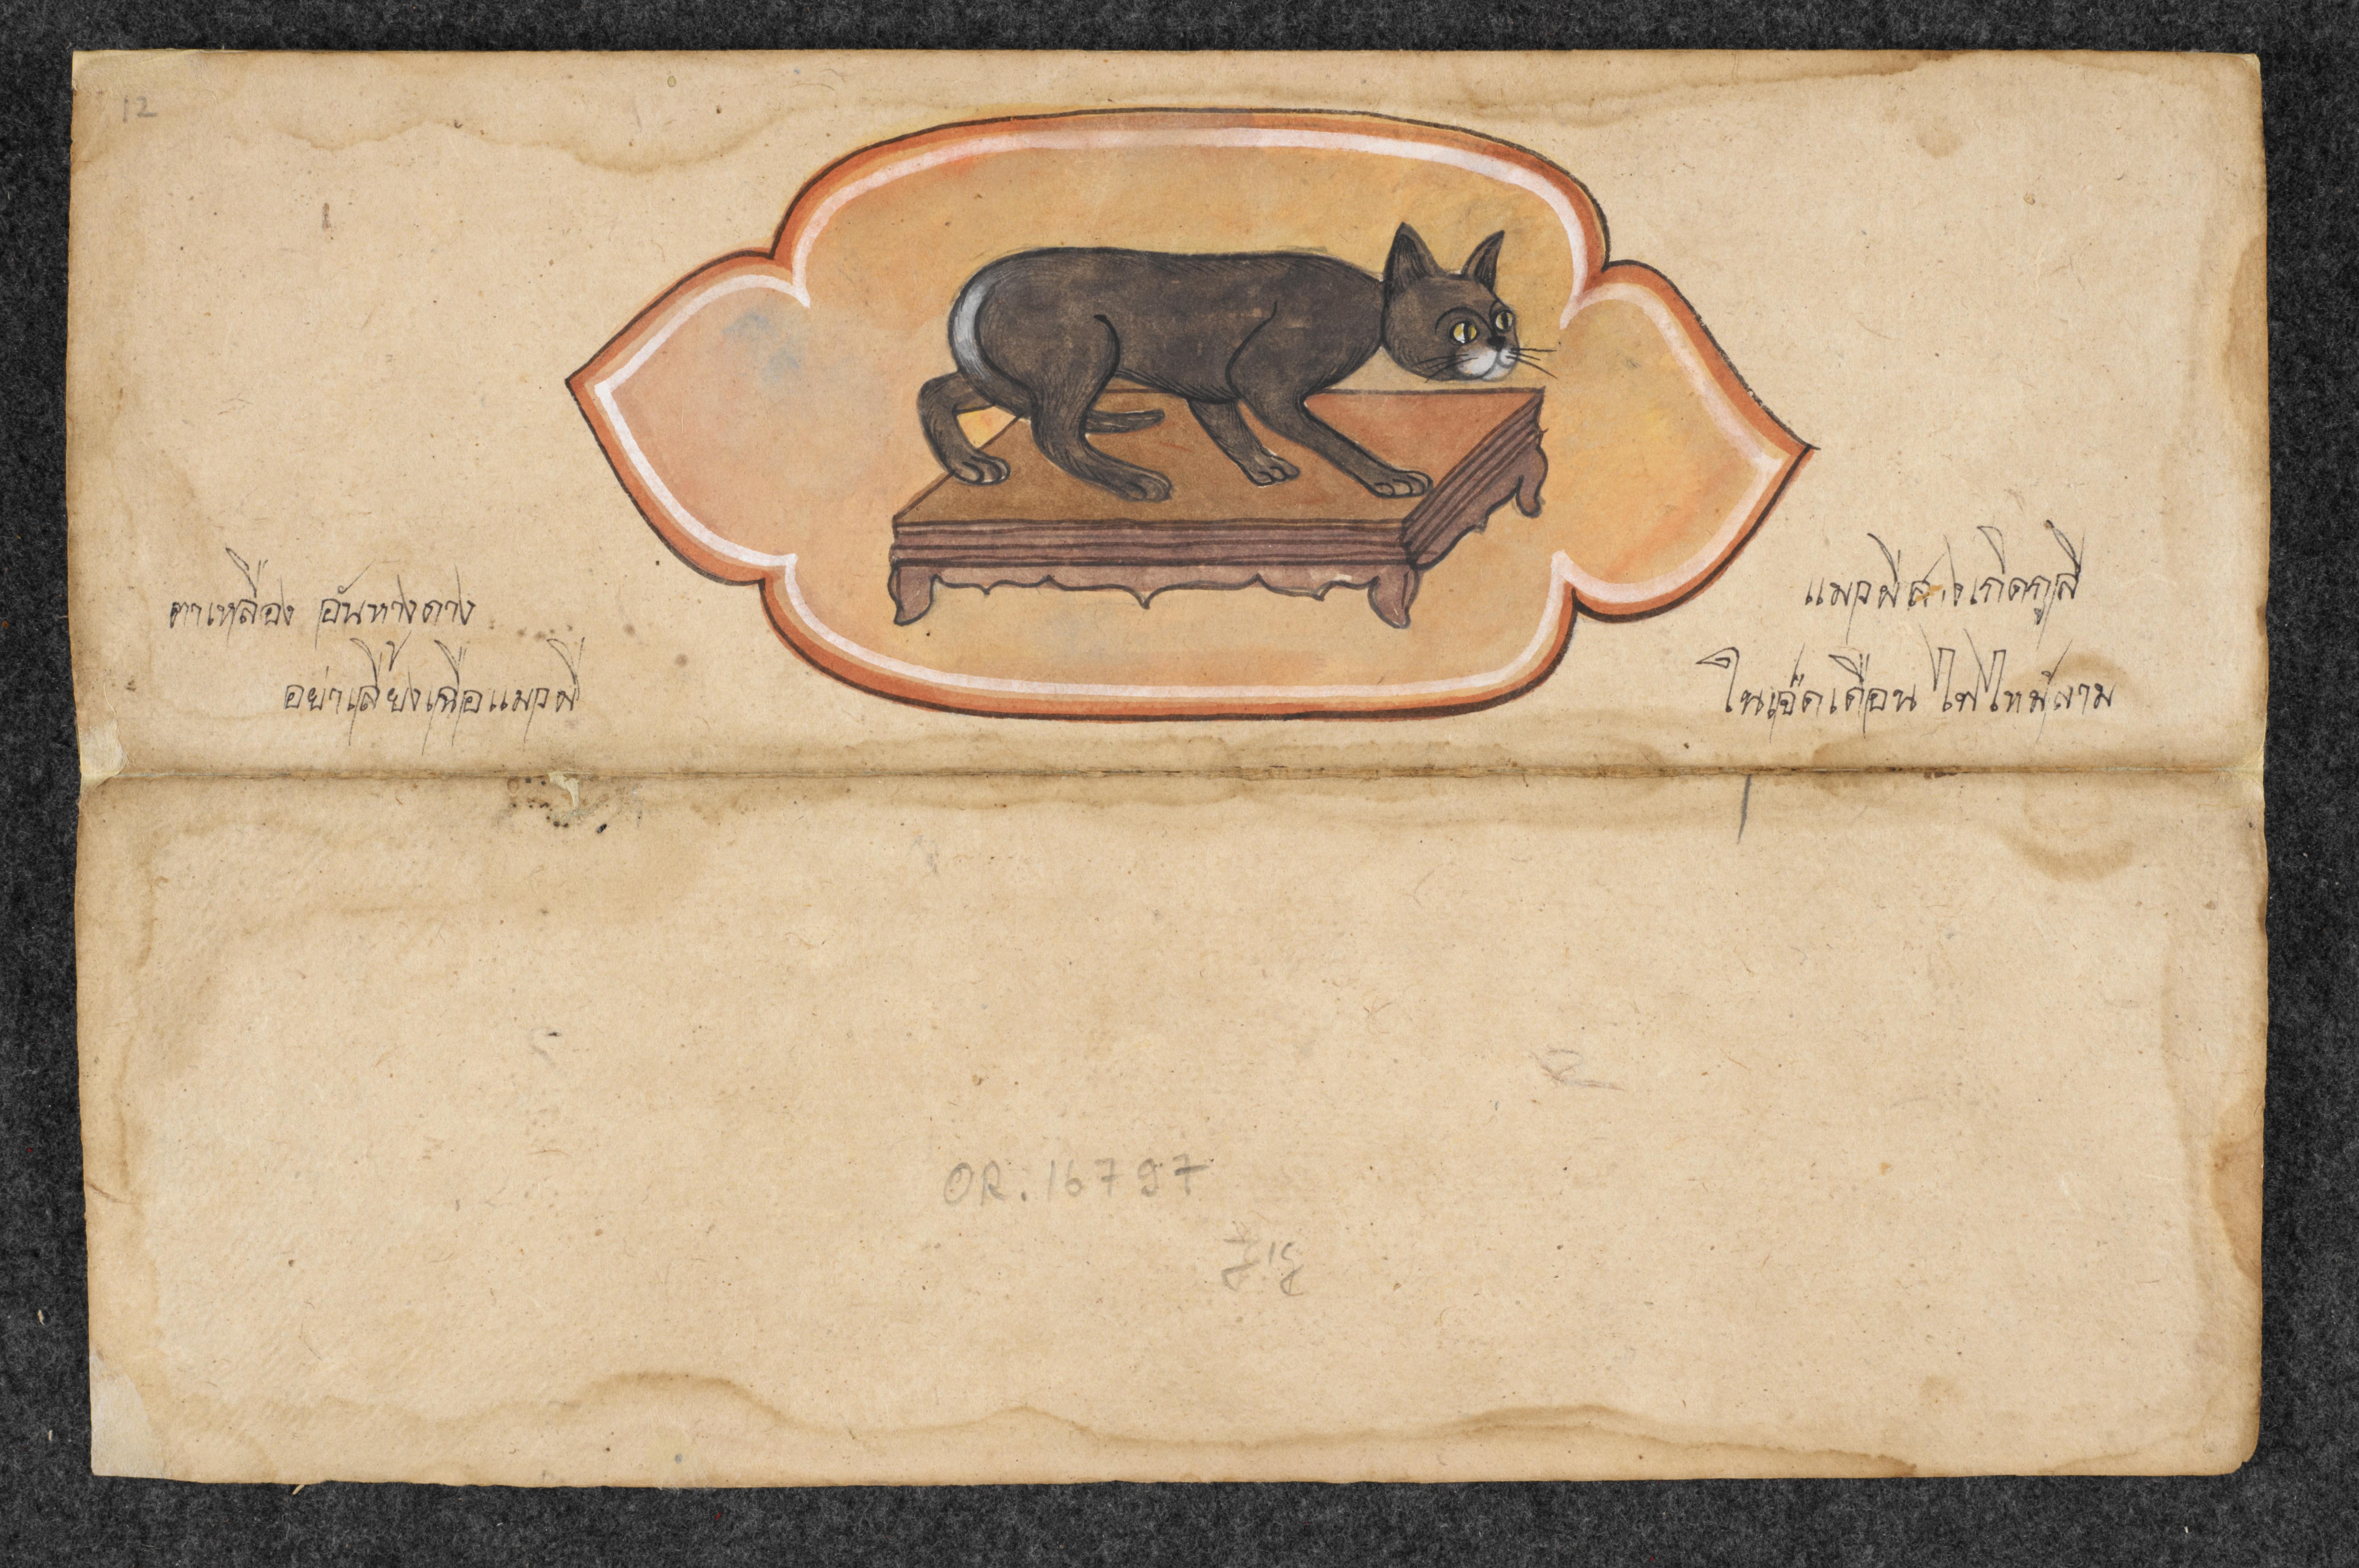 12
ตาเหลือง อันหางดาง
แมวผีสางเกิดกุลี
อย่าเลี้ยงเชื้อแมวผี
ในเจ็ดเดือน ไฟไหม้ลาม
OR. 16797